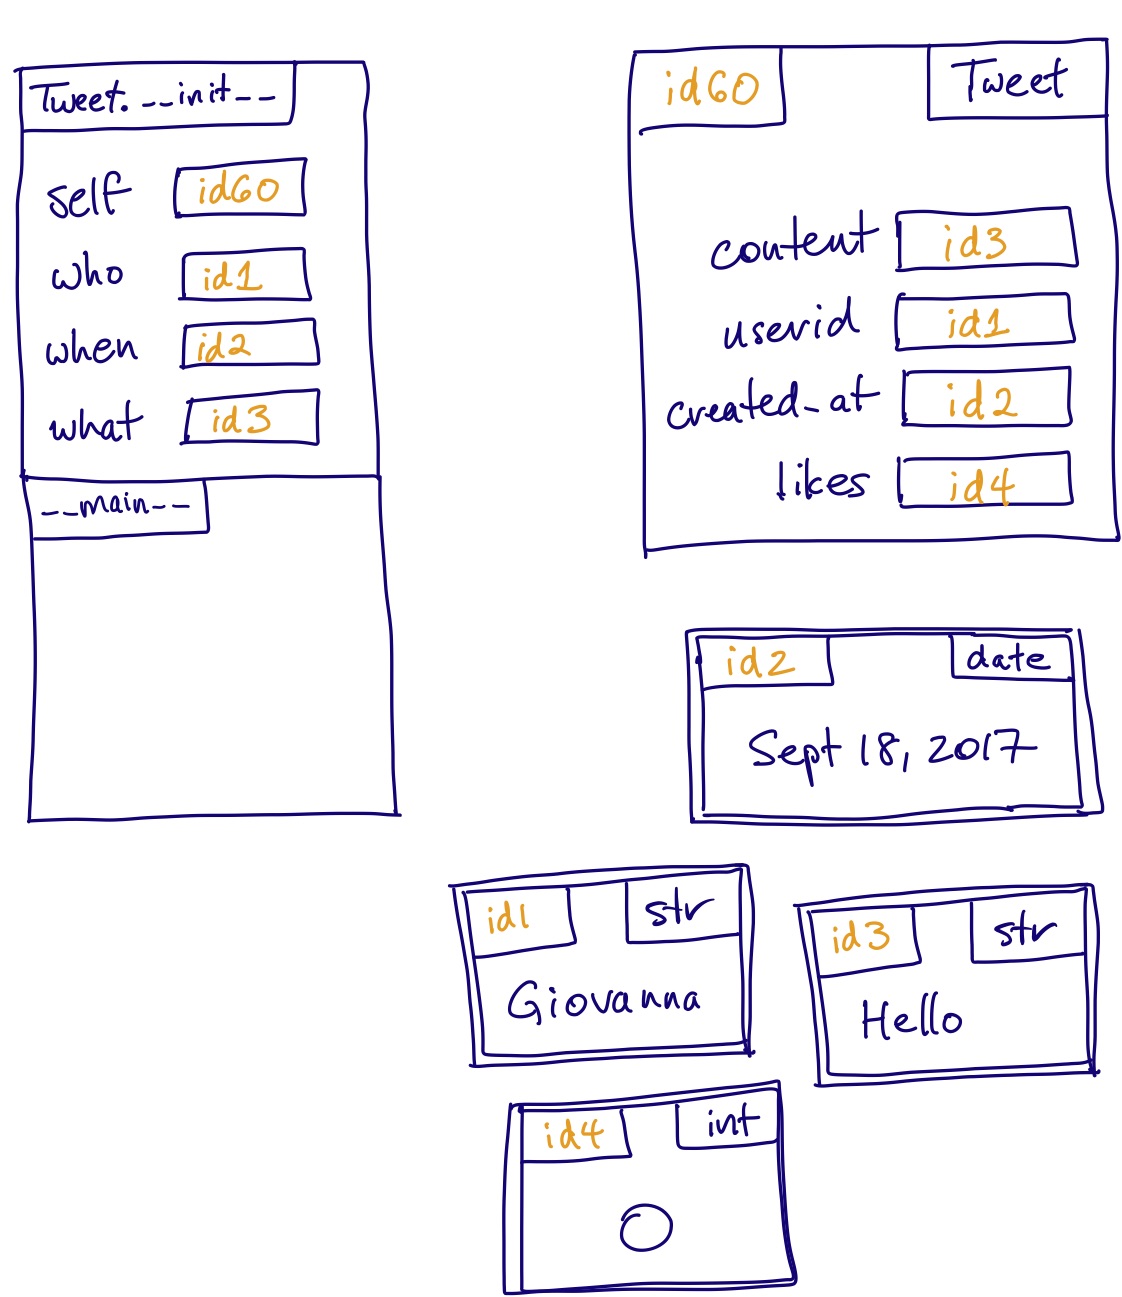 Tweet.__init__
self id60
who id1
when id2
what id3
__main__
id60 Tweet
content id3
userid id1
created_at id2
likes id4
id2 date
Sept 18, 2017
id1 str
Giovanna
id3 str
Hello
id4 int
0